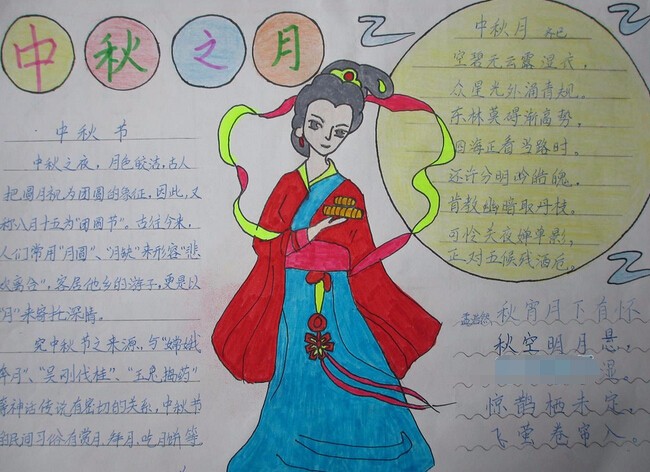 中秋之月
中秋节
中秋之夜,月色皎洁,古人
把圆月视为团圆的象征,因此,又
称八月十五为"团圆节"。古往今来,
人们常用"月圆"、"月缺"来形容"悲
欢离合",客居他乡的游子,更是以
"月"来寄托深情。
究中秋节之来源,与"嫦娥
奔月"、"吴刚伐桂"、"玉兔捣药"
等神话传说有密切的关系,中秋节
民间习俗有赏月、拜月、吃月饼等
中秋月 齐己
空碧无云露湿衣,
众星光外涌青规。
东林莫碍渐高势,
四海正看当路时。
还许分明吟皓魄,
肯教幽暗取丹枝。
可怜关夜婵娟影,
正对五候残酒卮。
孟浩然 秋宵月下有怀
秋空明月悬,
湿。
惊鹊栖未定,
飞萤卷帘入。